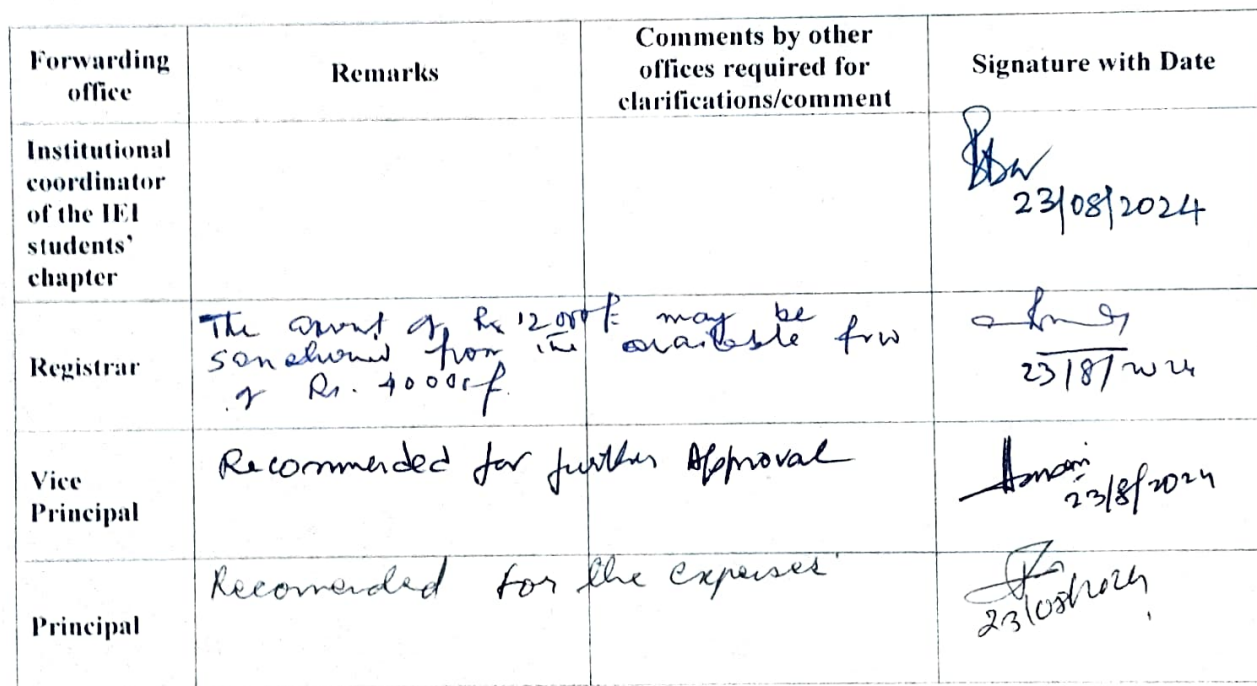 Forwarding office
Remarks
Comments by other offices required for clarifications/comment
Signature with Date
Institutional coordinator of the IEI students' chapter
23/08/2024
Registrar
The amount of Rs 12000/- may be
from the available
of Rs. 40000/-
23/8/2024
Vice Principal
Recommended for further Approval
23/8/2024
Principal
Recomended for the expenses
23/08/2024